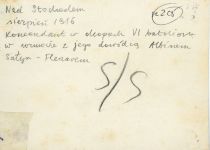 Nad Stochodem
sierpień 1916
Komendant w okopach VI batalionu
w rozmowie z jego dowódcą Albinem
Satyr - Fleszarem
S/S